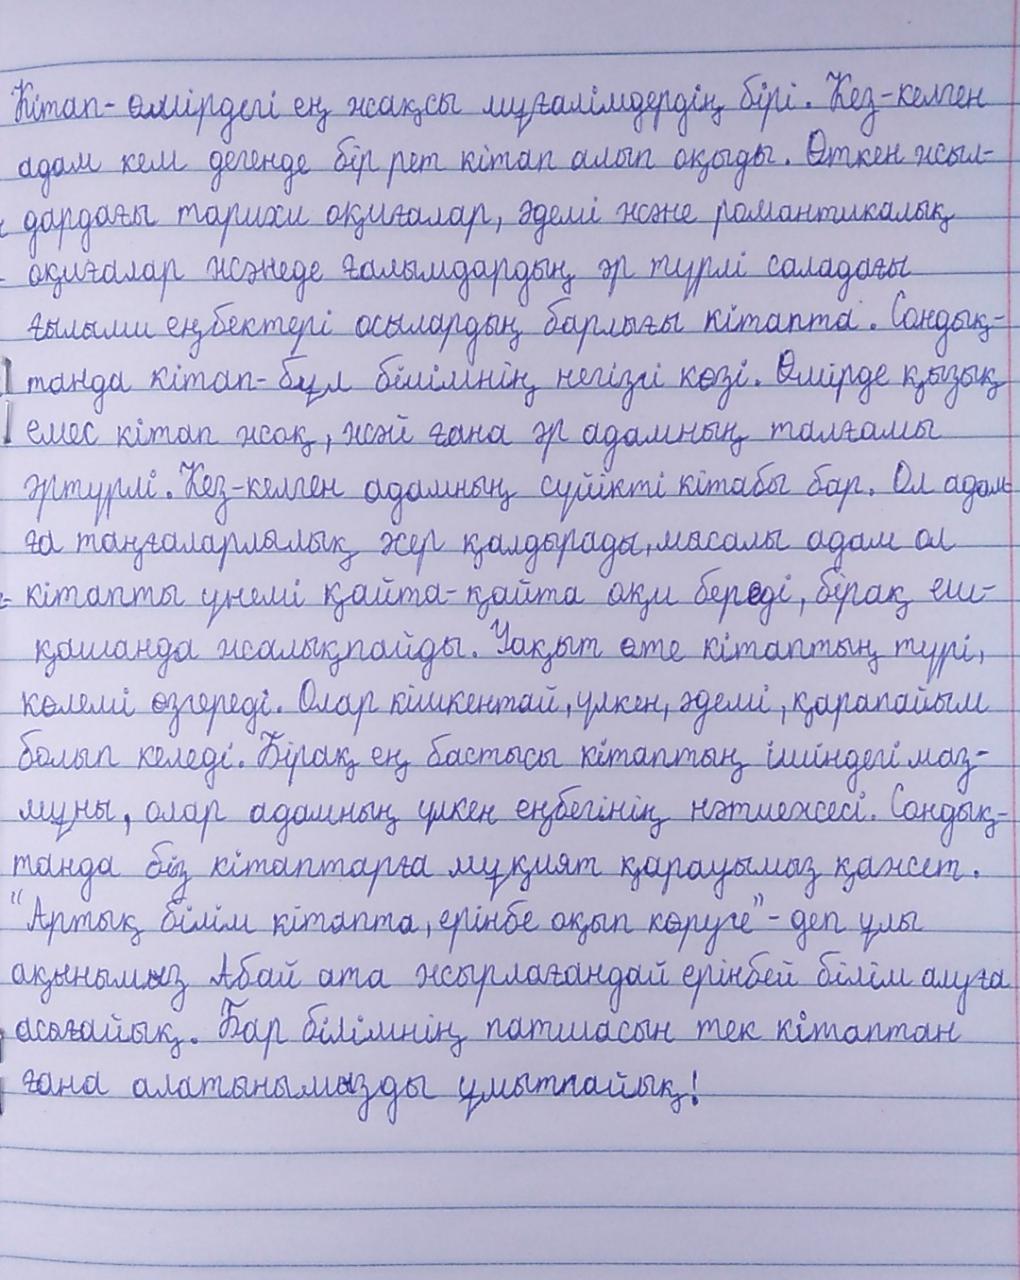 Кітап- өмірдегі ең жақсы мұғалімдердің бірі. Кез-келген
адам кем дегенде бір рет кітап алып оқыды. Өткен жыл-
дардағы тарихи оқиғалар, әдемі және романтикалық
оқиғалар жәнеде ғалымдардың әр түрлі саладағы
ғылыми еңбектері осылардың барлығы кітапта. Сондық-
танда кітап- бұл білімнің негізгі көзі. Өмірде қызық
емес кітап жоқ, жәй ғана әр адамның талғамы
әртүрлі. Кез-келген адамның сүйікті кітабы бар. Ол адам-
ға таңғаларлылық әсер қалдырады, масалы адам ол
кітапты үнемі қайта-қайта оқи береді, бірақ еш-
қашанда жалықпайды. Уақыт өте кітаптың түрі,
көлемі өзгереді. Олар кішкентай, үлкен, әдемі, қарапайым
болып келеді. Бірақ ең бастысы кітаптың ішіндегі маз-
мұны, олар адамның үлкен еңбегінің нәтиежесі. Сондық-
танда біз кітаптарға мұқият қарауымыз қажет.
"Артық білім кітапта, ерінбе оқып көруге"- деп ұлы
ақынымыз Абай ата жырлағандай ерінбей білім алуға
асығайық. Бар білімнің патшасын тек кітаптан
ғана алатынымызды ұмытпайық!